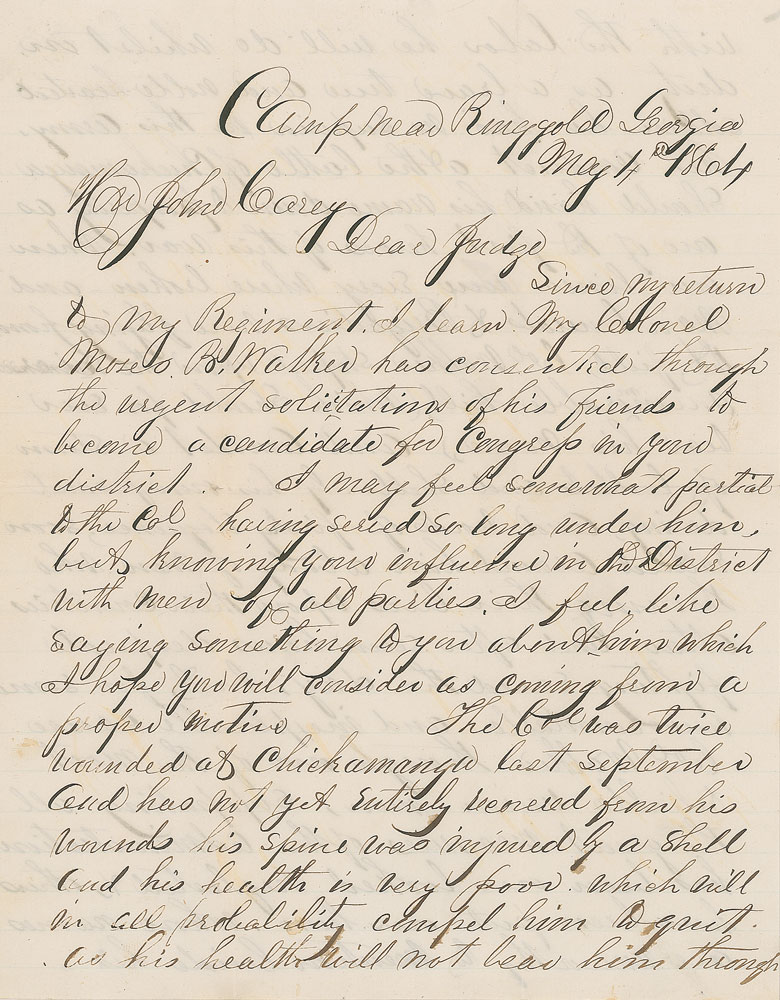 Camp near Ringgold Georgia
May 4th 1864
Hon John Carey
Dear Judge
Since my return
to my Regiment. I learn my Colonel
Moses B. Walker has consented through
the urgent solicitations of his friends to
become a candidate for Congress in your
district. I may feel somewhat partial
to the Col having served so long under him,
but knowing your influence in the District
with men of all parties. I feel like
saying something to you about him which
I hope you will consider as coming from a
proper motive The Col was twice
wounded at Chickamauga last September
and has not yet entirely recovered from his
wounds his spine was injured by a shell
and his health is very poor. which will
in all probability compel him to quit.
as his health will not bear him through